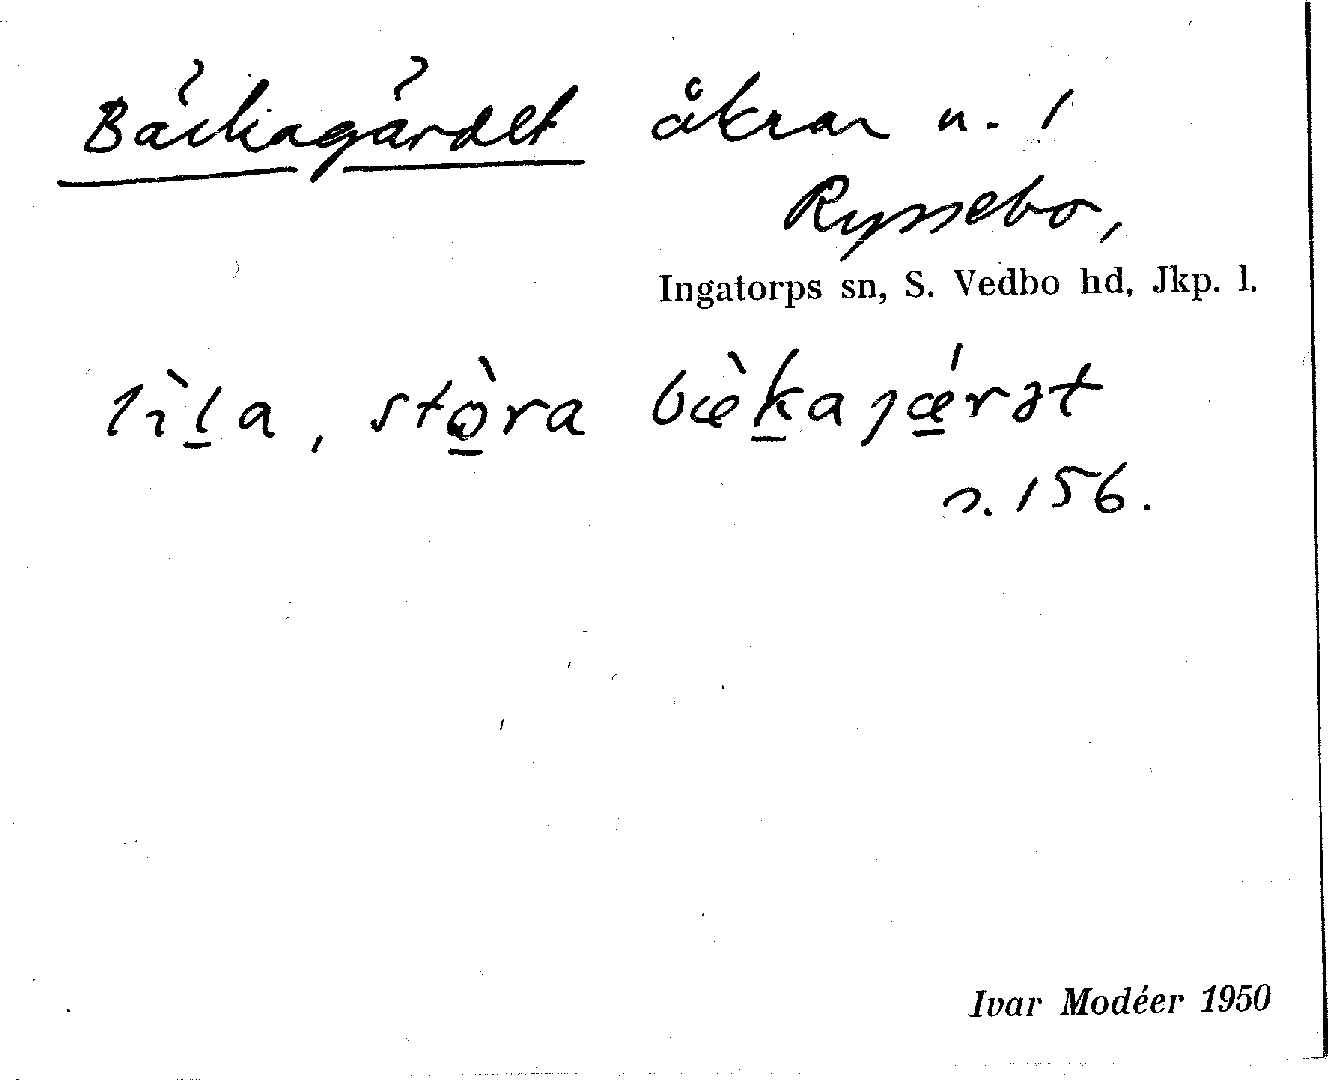 Bäckagärdet åkrar u. 1
Ryssebo,
Ingatorps sn, S. Vedbo hd, Jkp. l.
lìl̲a, stò̲ra bæ̀k̲ajǽ̲rət
s. 156.
Ivar Modéer 1950